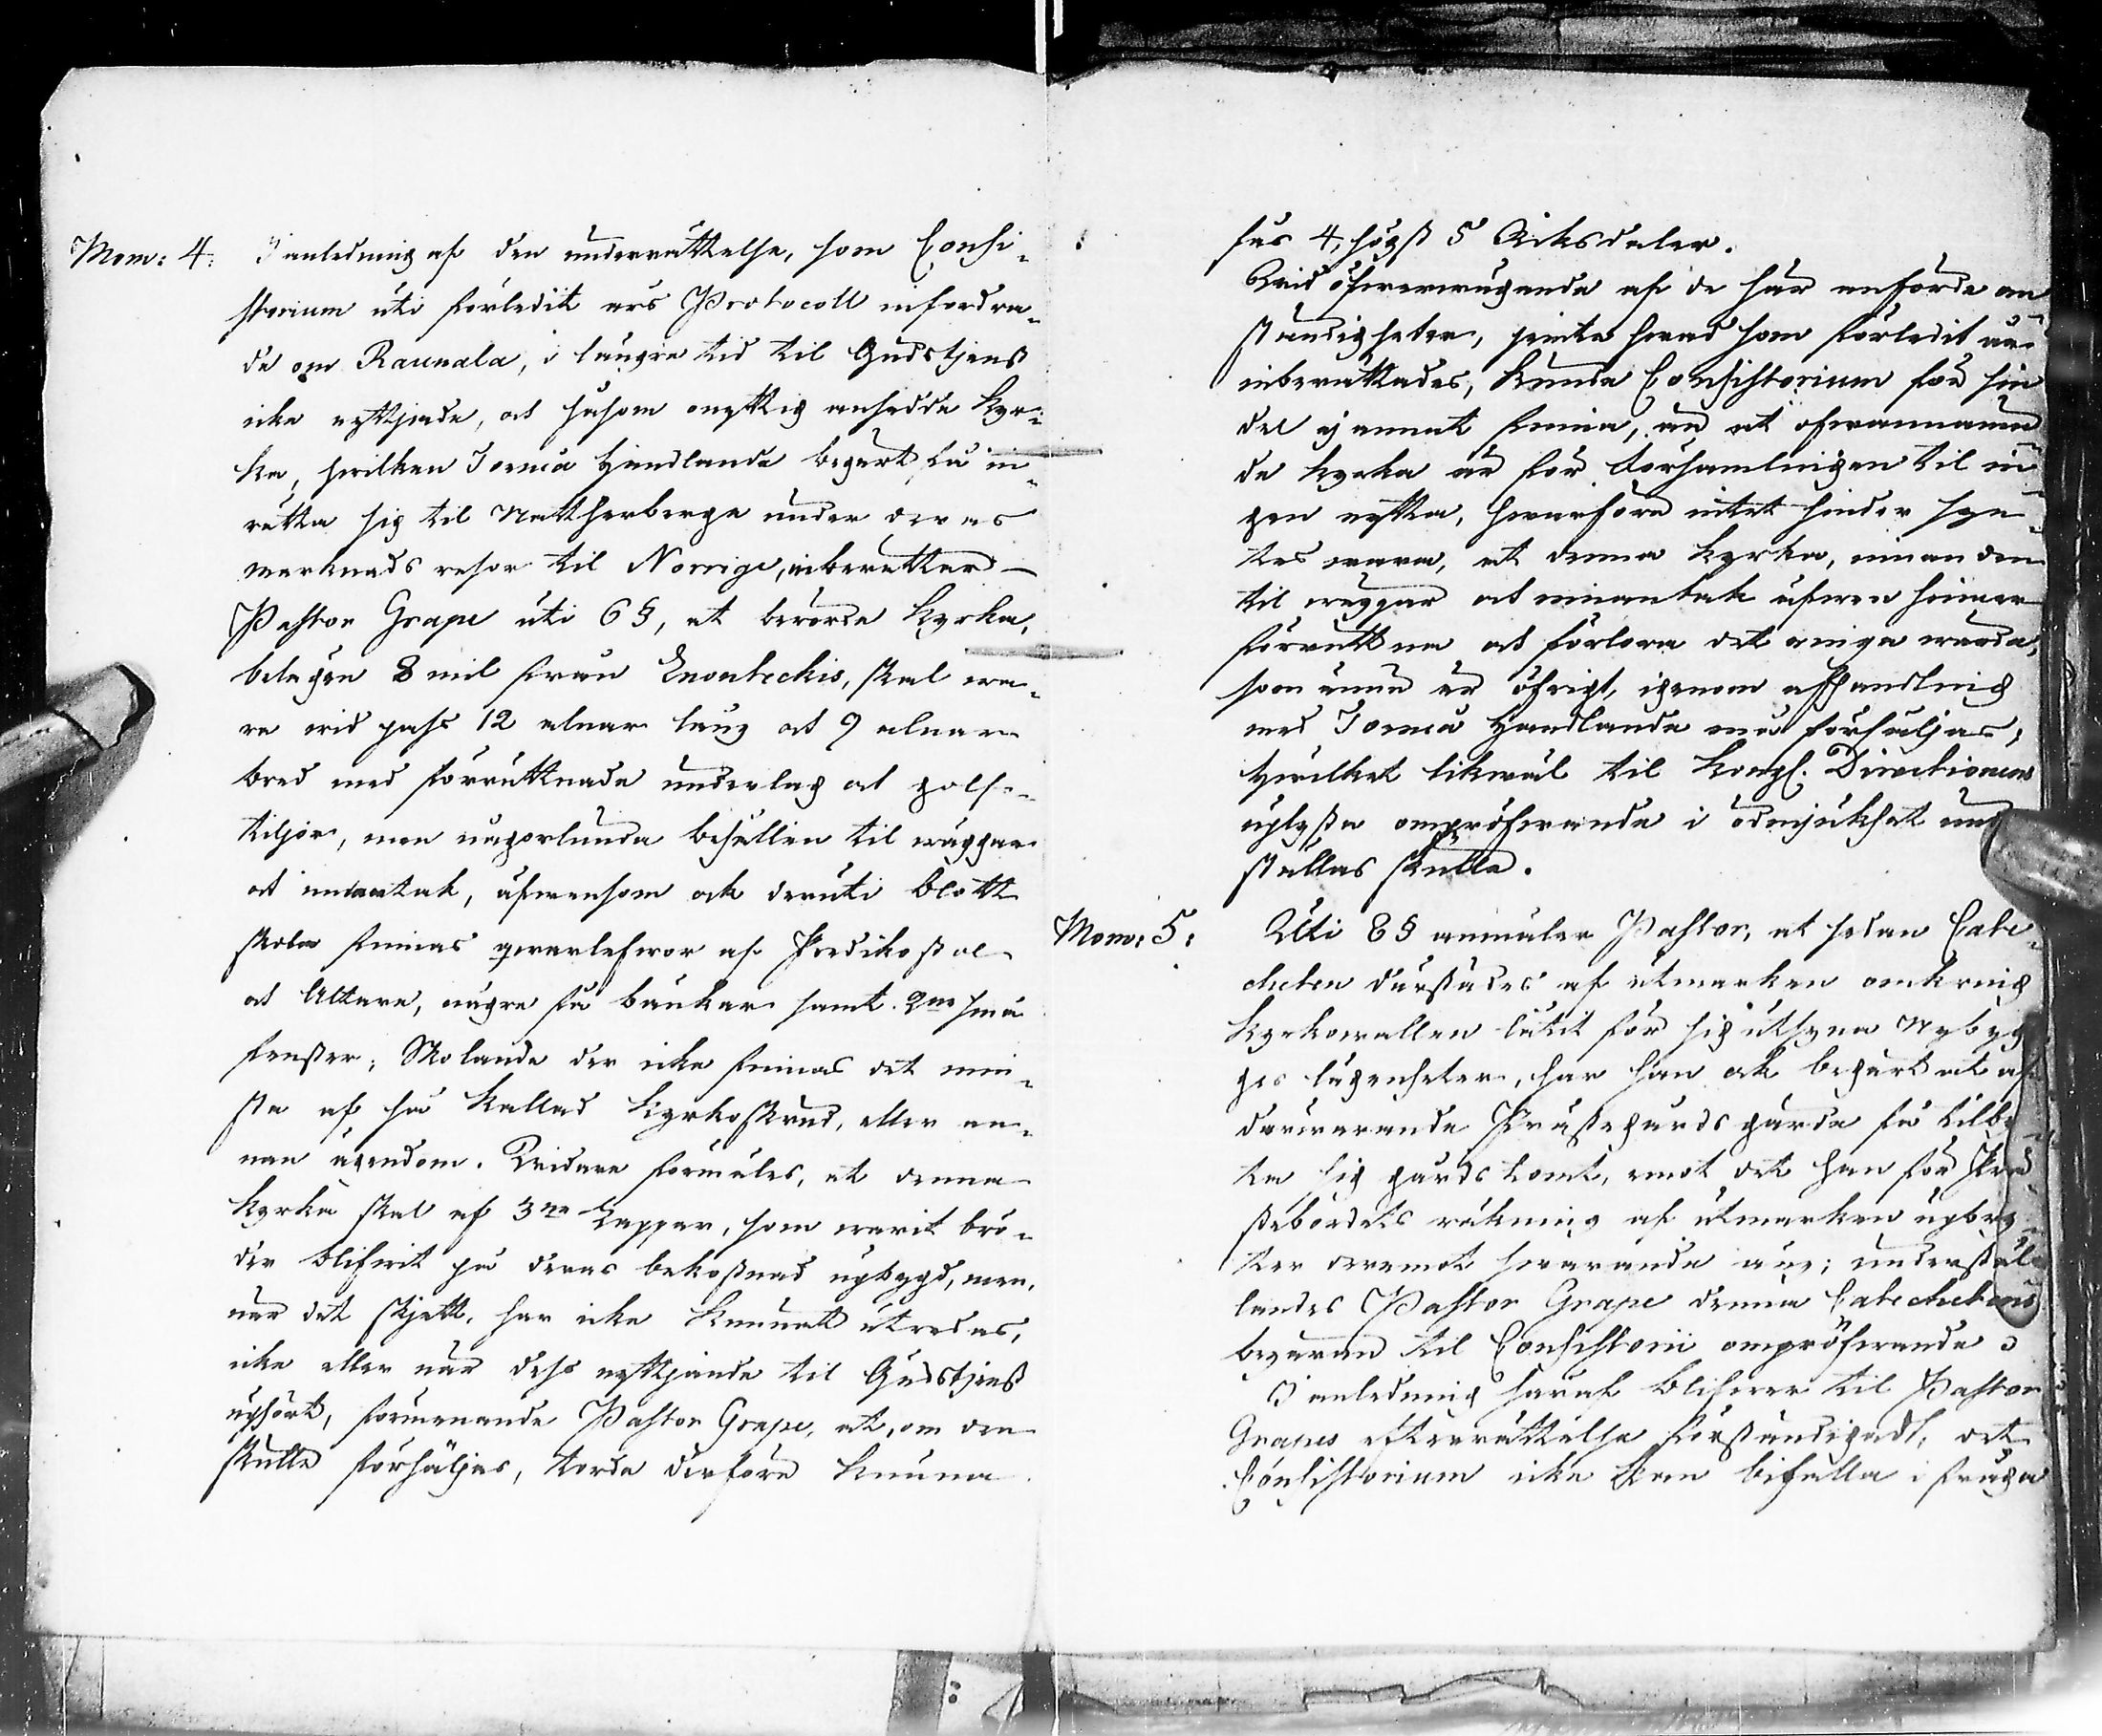 Mom: 4. I anledning af den underrättelse, som Consi-
storium uti förledit års Protocoll infordra-
de om Raunala, i längre tid til Gudstjenst
icke nyttjade, och såsom onyttig ansedde Kyr-
ka, hwilken Torneå Handlande begärt få in-
rätta sig til Nattherberge under deras
marknads resor til Norrige, inberättar
Pastor Grape uti 6 §, at berörde Kyrka,
belägen 8 mil från Enontekis, skal wa-
ra wid pass 12 alnar lång och 9 alnar
bred med förruttnade underlag och golf-
tiljor, men någorlunda behållen til wäggar
och innantak, äfwensom ock deruti blott
skola finnas qwarlefwor af Predikostol
och Altare, några få bänkar samt 2ne små
fenster; Skolande der icke finnas det min-
sta af så kallad Kyrkoskrud, eller an-
nan ägendom. Widare förmäles, at denna
Kyrka skal af 3ne Lappar, som warit brö-
der blifwit på deras bekostnad upbygd, men,
när det skjett, har icke kunnat utredas,
icke eller när dess nyttjande til Gudstjenst
uphört, förmenande Pastor Grape, at, om den
skulle försäljas, torde derföre kunna
fås 4, högst 5 Riksdaler.
Wid öfwerwägande af de här anförde om-
ständigheter, jemte hwad som förledit år
inberättades, kunde Consistorium för sin
del ej annat finna, än at ofwannämn-
de Kyrka är för Församlingen til in-
gen nytta, hwarföre intet hinder syn-
tes wara, at denna Kyrka, innan den
til wäggar och innantak äfwen hinner
förruttna och förlora det ringa wärde,
som ännu är öfrigt, igenom afhandling
med Torneå Handlande må försäljas;
Hwilket likwäl til Kongl. Directionens
uplysta ompröfwande i ödmjukhet und
ställas skulle.
Mom: 5: Uti 8 § anmäler Pastor, at sedan Cate-
cheten därstädes af utmarken omkring
Kyrkowallen låtit för sig utsyna Nybyg-
ges lägenheter, har han ock begärt at af
darwarande Prästegårds gärde få tilby-
ta sig gårdstomt, emot det han för Prä-
stebordets räkning af utmarken upbry-
ter deremot swarande äng; underställ-
landes Pastor Grape denna Catechetens
begäran til Consistorii ompröfwande.
I anledning häraf blifwer til Pastor
Grapes efterrättelse förständigadt, det
Consistorium icke kan bifalla i fråga